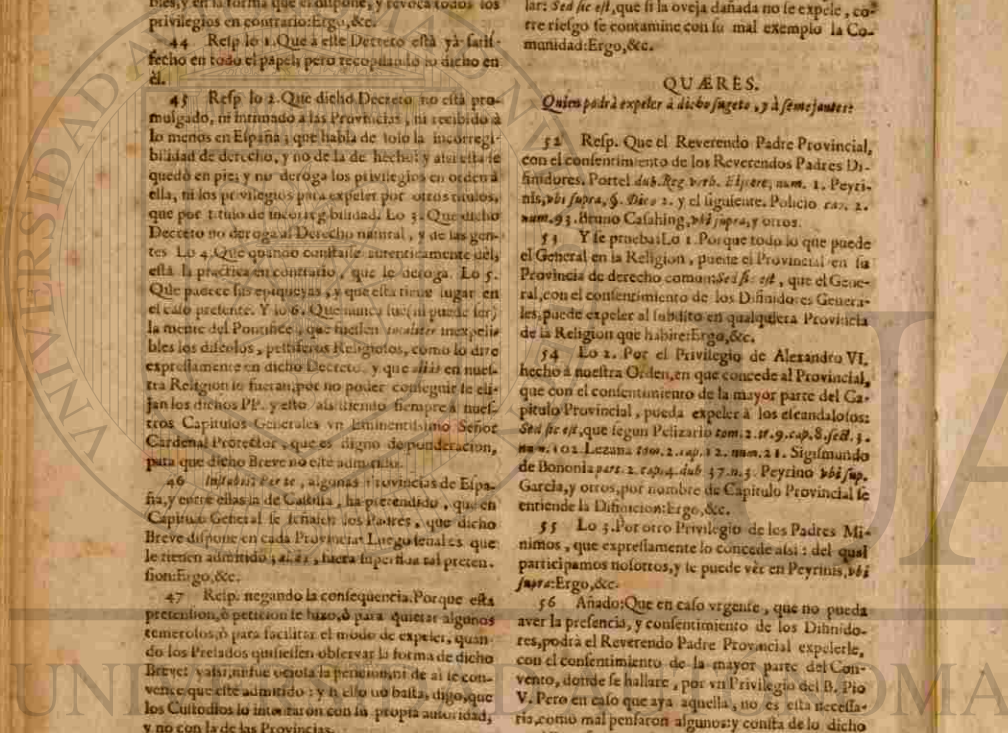 bles, y en la forma que el dispone, y revoca todos los
privilegios en contrario: Ergo, &c.
44 Resp lo 1. Que à este Decreto està yà satis-
fecho en todo el papel; pero recopilando lo dicho en
èl.
45 Resp lo 2. Que dicho Decreto no està pro-
mulgado, ni intimado a las Provincias, ni recibido à
lo menos en España; que habla de solo la incorregi-
bilidad de derecho, y no de la de hecho; y assi esta se
quedò en pie; y no deroga los privilegios en orden à
ella, ni los privilegios para expeler por otros titulos,
que por titulo de incorregibilidad. Lo 3. Que dicho
Decreto no deroga al Derecho natural, y de las gen-
tes Lo 4. Que quando constasse autenticamente dèl,
està la practica en contrario, que le deroga. Lo 5.
Que padece sus epiqueyas, y que esta tiene lugar en
el caso presente. Y lo 6. Que nunca fue (ni puede ser)
la mente del Pontifice, que fuessen inexpeli-
bles los discolos, pestiferos Religiosos, como lo dize
expressamente en dicho Decreto, y que aliàs en nues-
tra Religion lo fueran, por no poder conseguir se eli-
jan los dichos PP. y esto assistiendo siempre à nues-
tros Capitulos Generales vn Eminentissimo Señor
Cardenal Protector, que es digno de ponderacion,
para que dicho Breve no estè admitido.
46 algunas Provincias de Espa-
ña, y entre ellas la de Castilla, ha pretendido, que en
Capitulo General se señalen los Padres, que dicho
Breve dispone en cada Provincia: Luego señal es que
le tienen admitido; aliàs, fuera superflua tal preten-
sion: Ergo, &c.
47 Resp. negando la consequencia. Porque esta
pretension, ò peticion se hizo, ò para quietar algunos
temerosos, ò para facilitar el modo de expeler, quan-
do los Prelados quisiessen observar la forma de dicho
Breve: y assi, ni fue ociosa la peticion, ni de aì se con-
vence, que estè admitido: y si ello no basta, digo, que
los Custodios lo intentaron con su propia autoridad,
y no con la de las Provincias.
lar: Sed sic est, que si la oveja dañada no se expele, co-
rre riesgo se contamine con su mal exemplo la Co-
munidad: Ergo, &c.
QUÆRES.
Quien podrà expeler à dicho sugeto, y à semejantes?
52 Resp. Que el Reverendo Padre Provincial,
con el consentimiento de los Reverendos Padres Di-
finidores. Portel dub. Reg. verb. num. 1. Peyri-
nis, vbi supra, §. Dico 2. y el siguiente. Policio cap. 2.
num. 93. Bruno Casahing, vbi supra, y otros.
53 Y se prueba: Lo 1. Porque todo lo que puede
el General en la Religion, puede el Provincial en su
Provincia de derecho comun: Sed sic est, que el Gene-
ral, con el consentimiento de los Difinidores Genera-
les, puede expeler al subdito en qualquiera Provincia
de la Religion que habite: Ergo, &c.
54 Lo 2. Por el Privilegio de Alexandro VI.
hecho à nuestra Orden, en que concede al Provincial,
que con el consentimiento de la mayor parte del Ca-
pitulo Provincial, pueda expeler à los escandalosos:
Sed sic est, que segun Pelizario tom. 2. tr. 9. cap. 8. sect. 3.
num. 102. Lezana tom. 2. cap. 12. num. 21. Sigismundo
de Bononia part. 2. cap. 4. dub 37. n. 3. Peyrino vbi sup.
Garcia, y otros, por nombre de Capitulo Provincial se
entiende la Difinicion: Ergo, &c.
55 Lo 3. Por otro Privilegio de los Padres Mi-
nimos, que expressamente lo concede assi: del qual
participamos nosotros, y se puede vèr en Peyrinis, vbi
supra: Ergo, &c.
56 Añado: Que en caso vrgente, que no pueda
aver la presencia, y consentimiento de los Difinido-
res, podrà el Reverendo Padre Provincial expelerle,
con el consentimiento de la mayor parte del Con-
vento, donde se hallare, por vn Privilegio del B. Pio
V. Pero en caso que aya aquella, no es esta necessa-
ria, como mal pensaron algunos: y consta de lo dicho